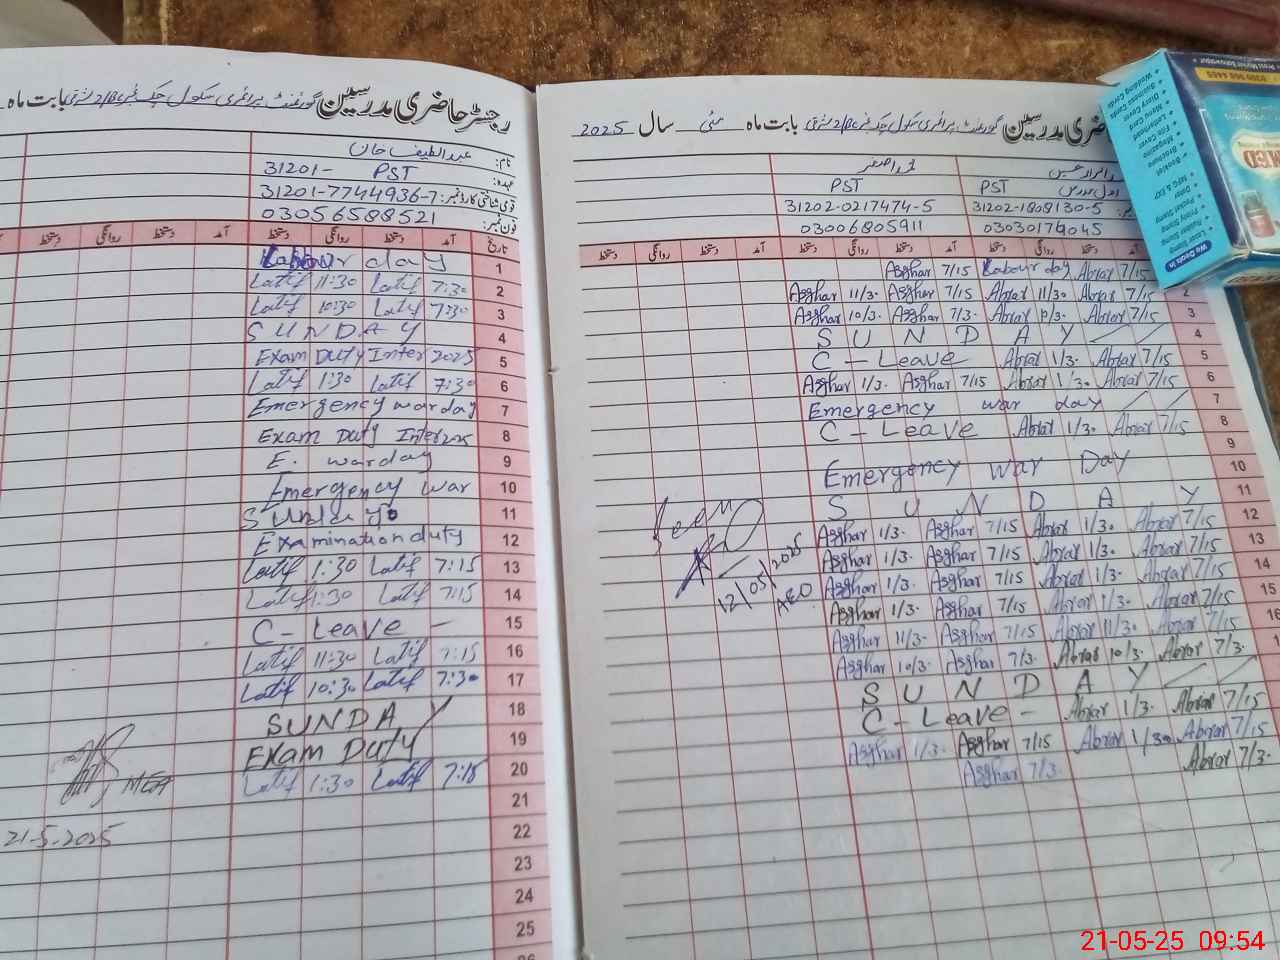 رجسٹر حاضری مدرسین گورنمنٹ پرائمری سکول چک نمبر بابت ماہ
نام: عبداللطیف خان
عہدہ: 31201- PST
قومی شناختی کارڈ نمبر: 31201-7744936-7
فون نمبر: 03056588521
تاریخ آمد دستخط روانگی دستخط آمد دستخط روانگی دستخط
1 Labour day
2 Latif 11:30 Latif 7:30
3 Latif 10:30 Latif 7:30
4 SUNDAY
5 Exam Duty Inter 2025
6 Latif 1:30 Latif 7:30
7 Emergency war day
8 Exam Duty Inter 2025
9 E. war day
10 Emergency war
11 Sunday
12 Examination duty
13 Latif 1:30 Latif 7:15
14 Latif 1:30 Latif 7:15
15 C- Leave -
16 Latif 11:30 Latif 7:15
17 Latif 10:30 Latif 7:30
18 SUNDAY
19 Exam Duty
20 Latif 1:30 Latif 7:15
21
22
23
24
25
MEA
21-5-2025
حاضری مدرسین گورنمنٹ پرائمری سکول چک نمبر بابت ماہ مئی سال 2025
محمد اصغر
PST PST
31202-0217474-5 31202-1808130-5
03006805911
دستخط روانگی دستخط آمد دستخط روانگی دستخط
Asghar 7/15 Labour day Abrar 7/15
Asghar 11/30 Asghar 7/15 Abrar 11/30 Abrar 7/15 2
Asghar 10/3. Asghar 7/3. Abrar Abrar 7/15 3
SUNDAY 4
C - Leave Abrar 1/3. Abrar 7/15 5
Asghar 1/3. Asghar 7/15 Abrar 1/3. Abrar 7/15 6
Emergency war day 7
C - Leave Abrar 1/3. Abrar 7/15 8
9
Emergency War Day 10
SUNDAY 11
Asghar 1/3. Asghar 7/15 Abrar 1/3. Abrar 7/15 12
Asghar 1/3. Asghar 7/15 Abrar 1/3. Abrar 7/15 13
Asghar 1/3. Asghar 7/15 Abrar 1/3. Abrar 7/15 14
Asghar 1/3. Asghar 7/15 Abrar 1/3. Abrar 7/15 15
Asghar 11/3. Asghar 7/15 Abrar 11/3. Abrar 7/15 16
Asghar 10/3. Asghar 7/3. Abrar 10/3. Abrar 7/3.
SUNDAY
C - Leave - Abrar 1/3. Abrar 7/15
Asghar 1/3. Asghar 7/15 Abrar 1/30 Abrar 7/15
Asghar 7/3. Abrar 7/3.
Seen
12/05/2025
AEO
We Deals in
21-05-25 09:54